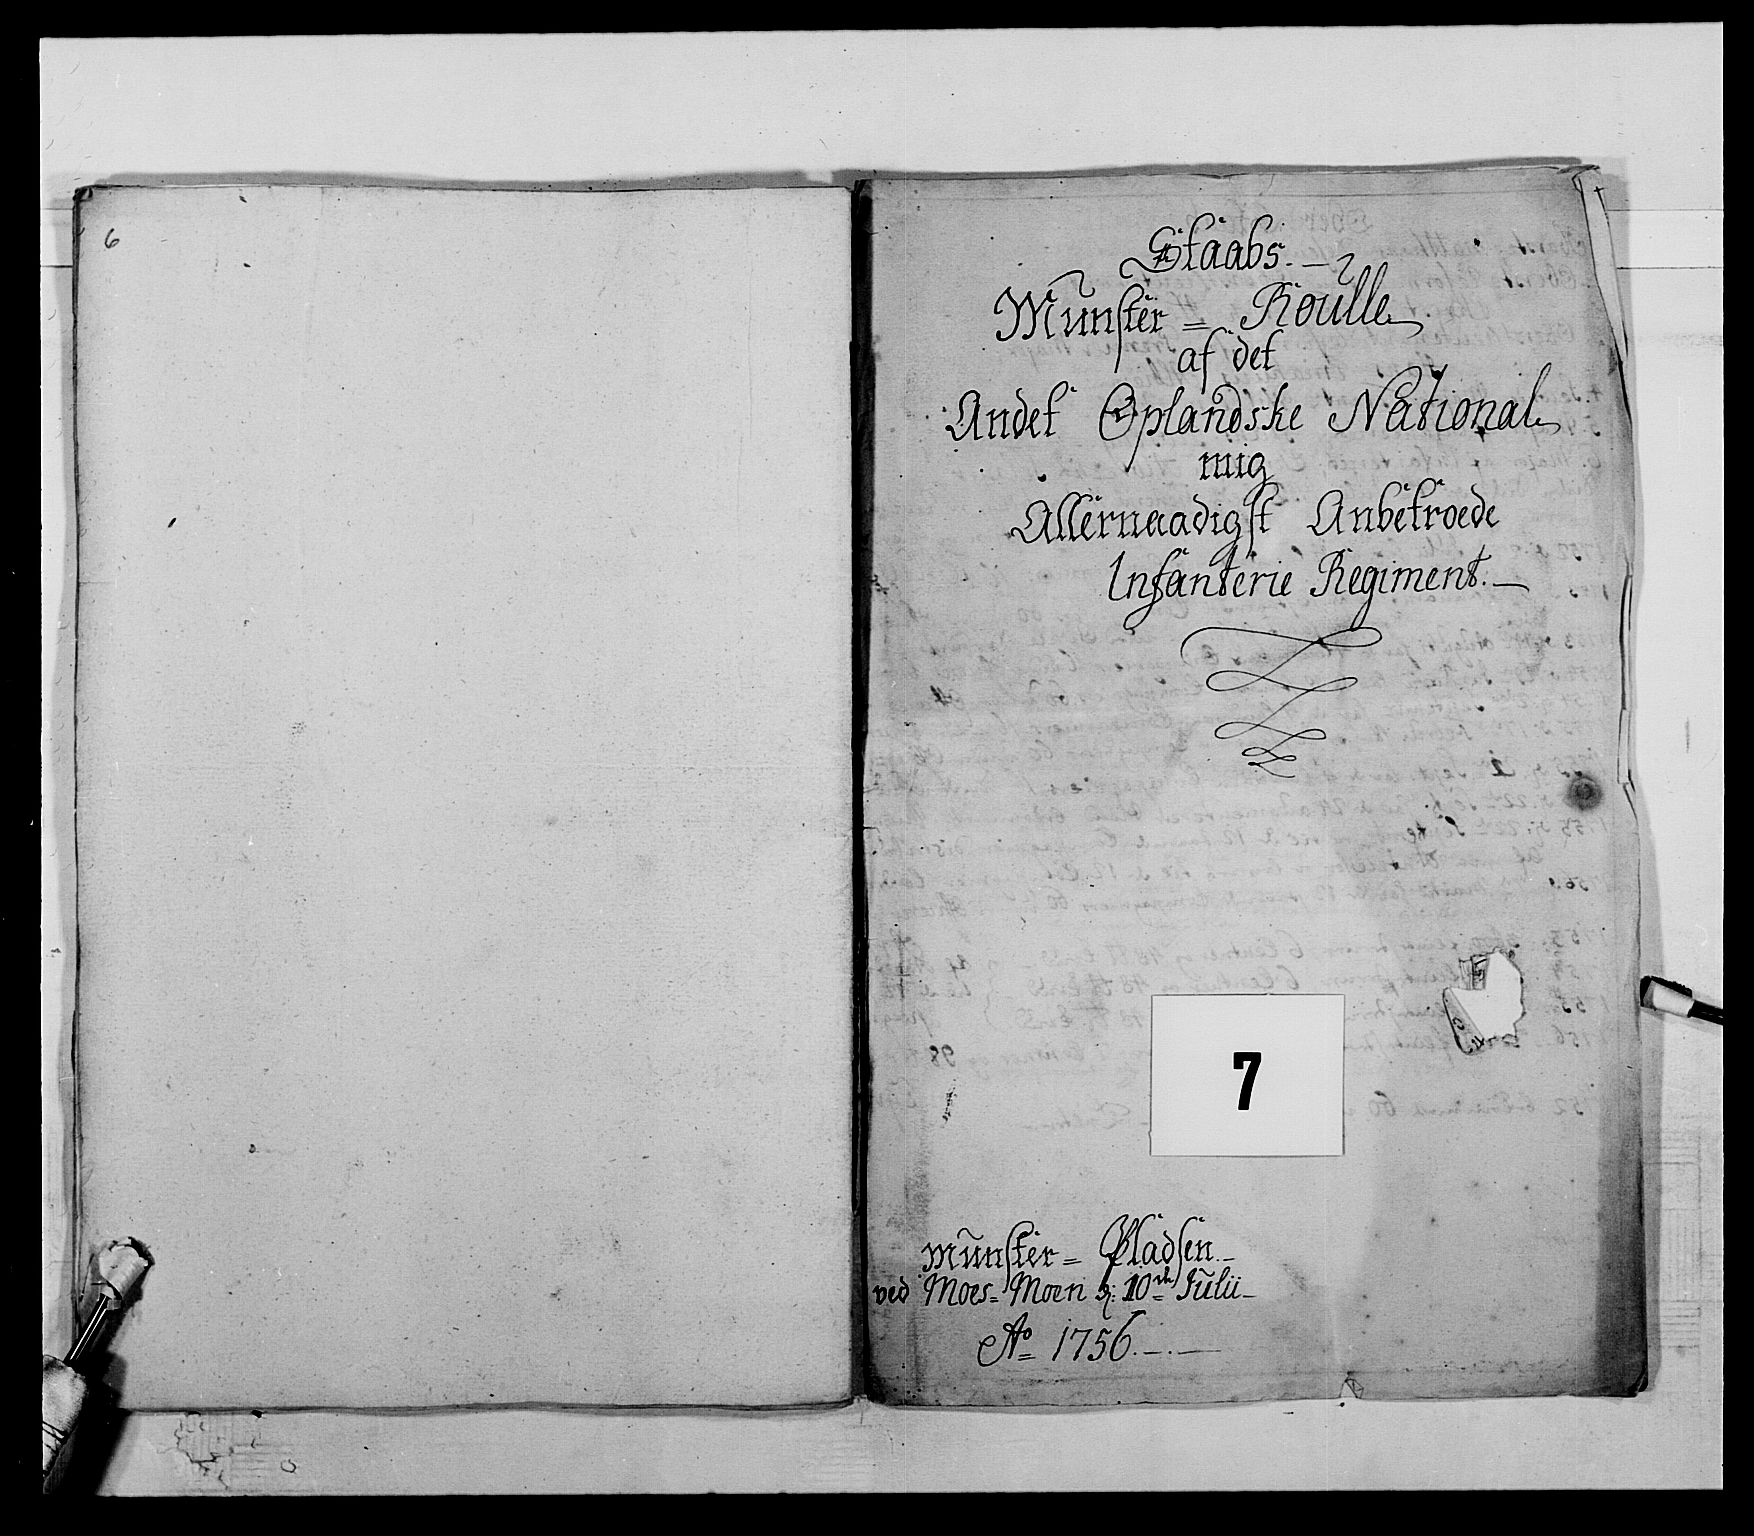 6
Staabs.
Münster = Roülle
af det
Andet Oplandske National
mig
Allernaadigst Anbetroede
Infanterie Regiment.
7
Münster = Pladsen.
ved Moes = Moen d: 10de Julii
Ao 1756.